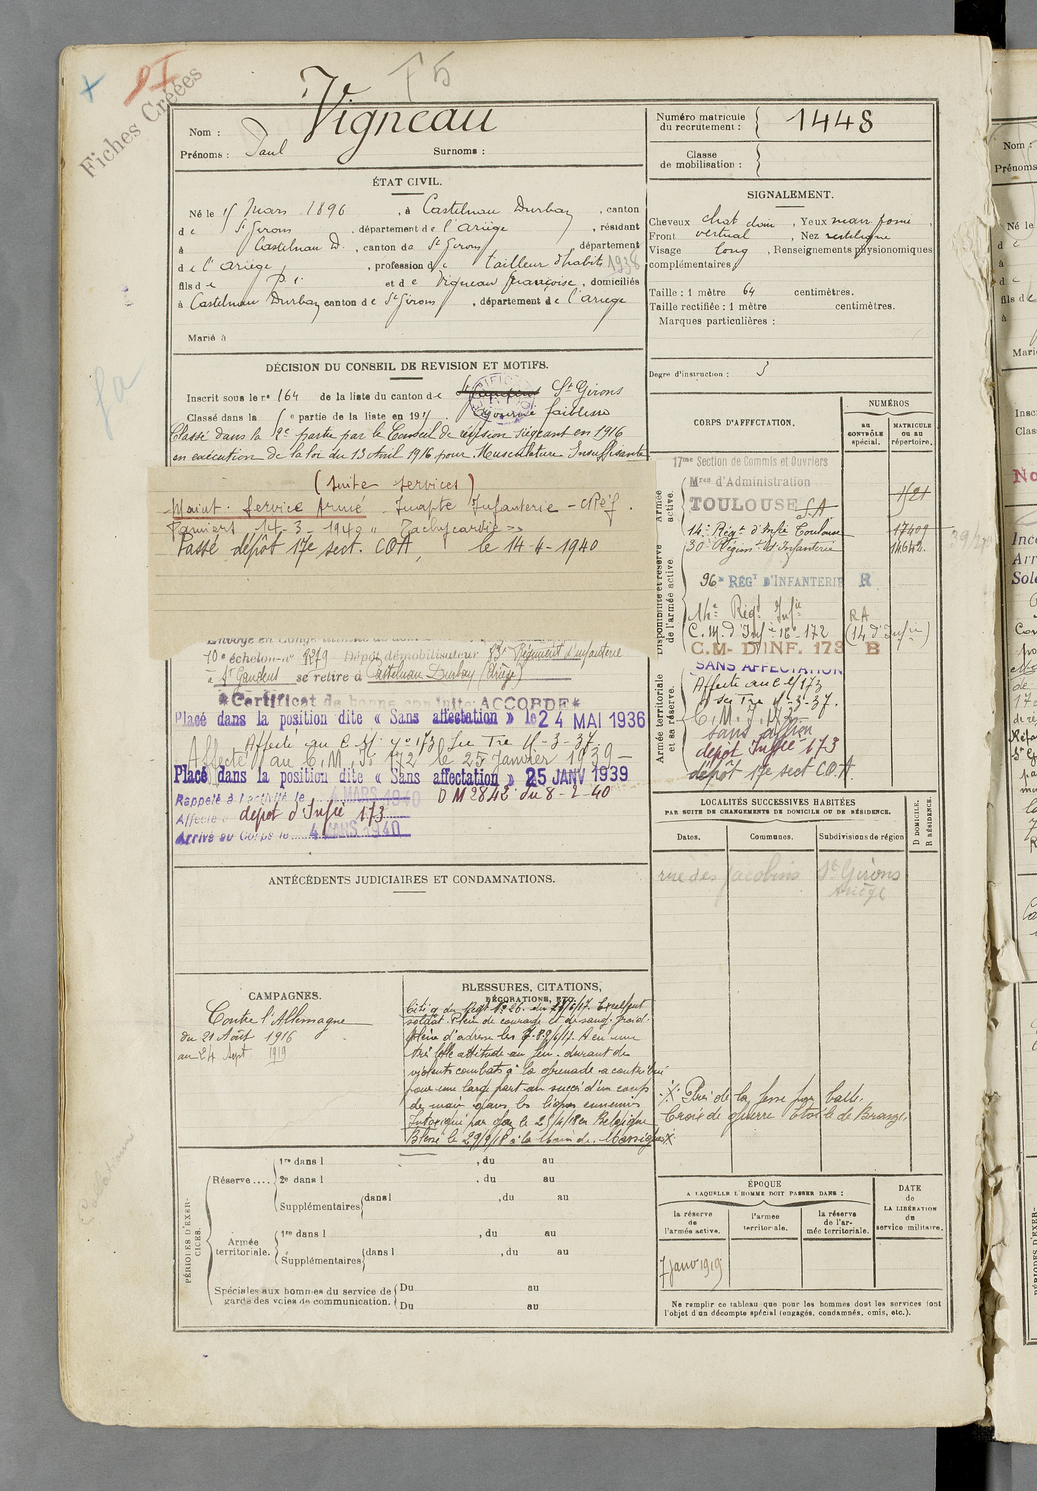 Fiches Créées
F5
Nom : Vigneau
Prénoms : Paul Surnoms :
Numéro matricule du recrutement : 1448
Classe de mobilisation :
ÉTAT CIVIL.
Né le mars 1896, à Castelnau Durban, canton
de St Girons, département de l'ariège, résidant
à Castelnau D., canton de St Girons, département
de l'ariège, profession de tailleur d'habits 1938
fils de p. i. et de Vigneau françoise, domiciliés
à Castelnau Durban canton de St Girons, département de l'ariège
Marié à
SIGNALEMENT.
Cheveux chat, Yeux
Front vertical, Nez rectiligne
Visage long, Renseignements physionomiques
complémentaires
Taille : 1 mètre 64 centimètres.
Taille rectifiée : 1 mètre centimètres.
Marques particulières :
Degré d'instruction : 3
DÉCISION DU CONSEIL DE REVISION ET MOTIFS.
Inscrit sous le no 164 de la liste du canton de St Girons
Classé dans la partie de la liste en 19 faiblesse
Classé dans la 2e partie par le Conseil de révision siégeant en 1916
en exécution de la loi du 13 Avril 1916 pour Musculature Insuffisante
(suite services)
Maint. Service Armé Inapte Infanterie - CRéf.
Pamiers 14-3-1940 "Tachycardie"
Passé dépôt 17e sect. COA le 14-4-1940
10e échelon no Dépôt démobilisateur Régiment d'infanterie
à St Gaudens se retire à Castelnau Durban (Ariège)
*Certificat de bonne conduite ACCORDÉ*
Placé dans la position dite « Sans affectation » le 24 MAI 1936
Affecté au C.M. no 173
Affecté au C.M. 172 le 25 Janvier 1939
Placé dans la position dite « Sans affectation » 25 JANV 1939
Rappelé à l'activité le 4 MARS 1940 DM 2842 du 8-2-40
Affecté dépôt d'Infie 173
Arrivé au Corps le 4 MARS 1940
CORPS D'AFFECTATION.
NUMÉROS
AU CONTRÔLE spécial.
MATRICULE OU AU répertoire.
Armée active.
Disponibilité et réserve de l'armée active.
Armée territoriale et sa réserve.
17me Section de Commis et Ouvriers
Mres d'Administration
TOULOUSE
14e Régt d'Infie Toulouse 17409
30e Régiment d'Infanterie
96e RÉGT D'INFANTERIE R
14e Régt Infie RA
C.M. d'Infie 16e 172 (14 d'Infie)
C.M. D'INF. 173 B
SANS AFFECTATION
Affecté au C M 173
C.M. I. 173
sans affon
dépôt Infie 173
dépôt 17e sect COA
LOCALITÉS SUCCESSIVES HABITÉES
PAR SUITE DE CHANGEMENTS DE DOMICILE OU DE RÉSIDENCE.
Dates. Communes. Subdivisions de région
D DOMICILE. R RÉSIDENCE.
rue des Jacobins St Girons
Ariège
ANTÉCÉDENTS JUDICIAIRES ET CONDAMNATIONS.
CAMPAGNES.
Contre l'Allemagne
du 21 Août 1916
au 24 Sept 1919
BLESSURES, CITATIONS,
DÉCORATIONS, ETC.
Excellent
soldat. Plein de courage et de sang froid.
A eu une
très belle attitude au feu. durant de
violents combats à la grenade a contribué
pour une large part au succès d'un coup
de main dans les lignes ennemies
Intoxiqué par gaz le 25/4/18 en Belgique
Blessé le 29/9/18 à la Main de Massiges
Près de la fesse par balle.
Croix de guerre Etoile de Bronze.
PÉRIODES D'EXERCICES.
Réserve.... 1re dans l , du au
2e dans l , du au
Supplémentaires dans l , du au
Armée territoriale. 1re dans l , du au
Supplémentaires dans l , du au
Spéciales aux hommes du service de garde des voies de communication. Du au
Du au
ÉPOQUE
A LAQUELLE L'HOMME DOIT PASSER DANS :
la réserve de l'armée active.
l'armée territoriale.
la réserve de l'armée territoriale.
DATE de LA LIBÉRATION du service militaire.
7 janv 1919
Ne remplir ce tableau que pour les hommes dont les services font
l'objet d'un décompte spécial (engagés, condamnés, omis, etc.).